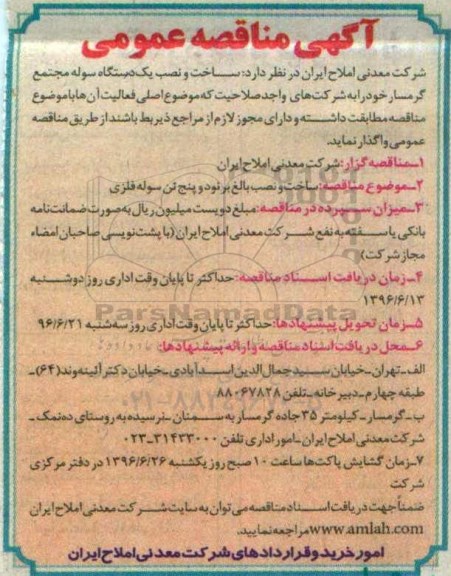 آگهی مناقصه عمومی
شرکت معدنی املاح ایران در نظر دارد: ساخت و نصب یک دستگاه سوله مجتمع
گرمسار خود را به شرکت های واجد صلاحیت که موضوع اصلی فعالیت آن ها با موضوع
مناقصه مطابقت داشته و دارای مجوز لازم از مراجع ذیربط باشند از طریق مناقصه
عمومی واگذار نماید.
۱ـ مناقصه گزار: شرکت معدنی املاح ایران
۲ـ موضوع مناقصه: ساخت و نصب بالغ بر نود و پنج تن سوله فلزی
۳ـ میزان سپرده در مناقصه: مبلغ دویست میلیون ریال به صورت ضمانت نامه
بانکی یا سفته به نفع شرکت معدنی املاح ایران (با پشت نویسی صاحبان امضاء
مجاز شرکت)
۴ـ زمان دریافت اسناد مناقصه: حداکثر تا پایان وقت اداری روز دوشنبه
۱۳۹۶/۶/۱۳
ParsNamadData
۵ـ زمان تحویل پیشنهادها: حداکثر تا پایان وقت اداری روز سه شنبه ۹۶/۶/۲۱
۶ـ محل دریافت اسناد مناقصه و ارائه پیشنهادها:
الف ـ تهران ـ خیابان سید جمال الدین اسدآبادی ـ خیابان دکتر آئینه وند (۶۴) ـ
طبقه چهارم ـ دبیرخانه ـ تلفن ۸۸۰۶۷۸۲۸
ب ـ گرمسار ـ کیلومتر ۳۵ جاده گرمسار به سمنان ـ نرسیده به روستای ده نمک ـ
شرکت معدنی املاح ایران ـ امور اداری تلفن ۳۱۴۳۳۰۰۰ـ۰۲۳
۷ـ زمان گشایش پاکت ها ساعت ۱۰ صبح روز یکشنبه ۱۳۹۶/۶/۲۶ در دفتر مرکزی
شرکت
ضمناً جهت دریافت اسناد مناقصه می توان به سایت شرکت معدنی املاح ایران
www.amlah.com مراجعه نمایید.
امور خرید و قراردادهای شرکت معدنی املاح ایران